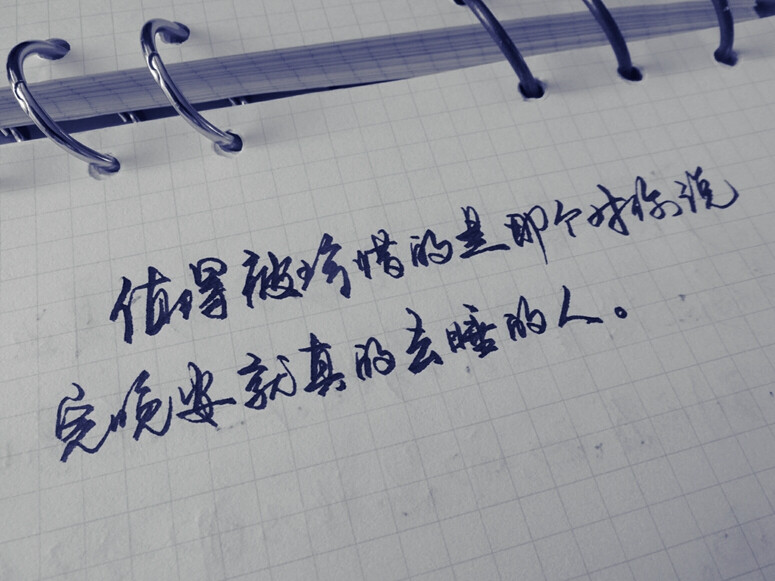 值得被珍惜的是那个对你说
完晚安就真的去睡的人。